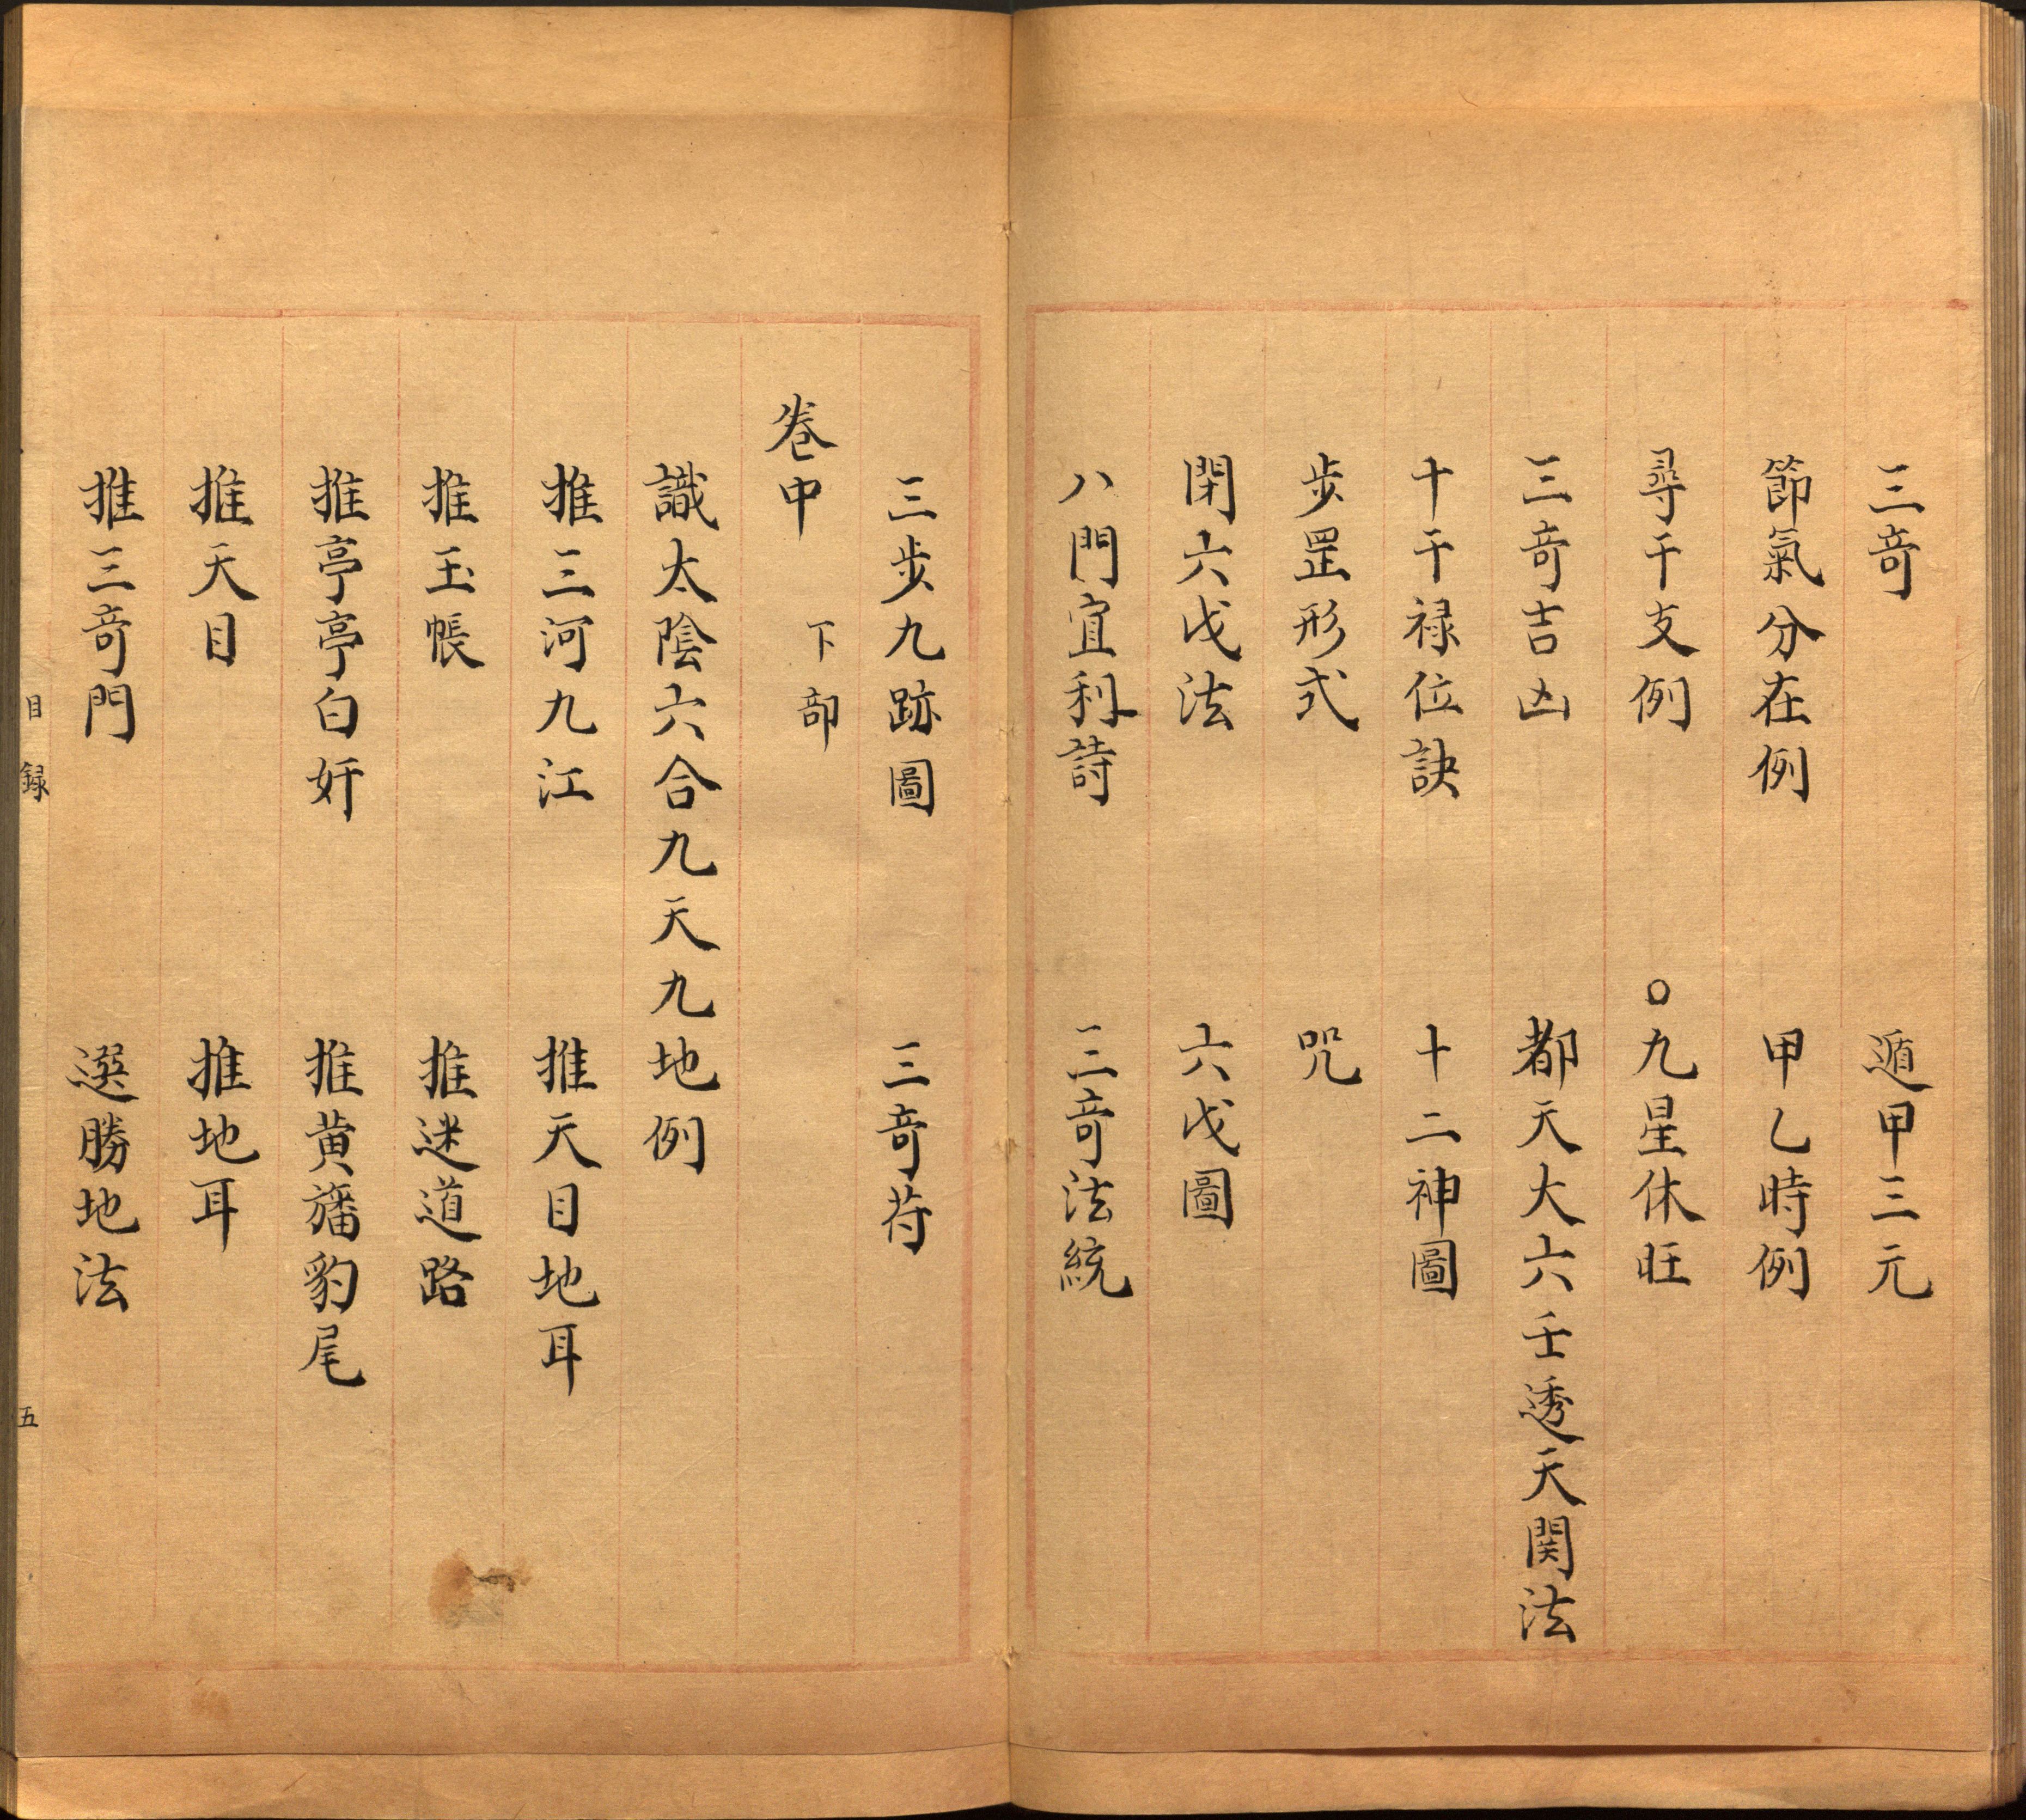 三奇　遁甲三元
節氣分在例　甲乙時例
尋干支例　○九星休旺
三奇吉凶　都天大六壬透天関法
十干禄位訣　十二神圖
步罡形式　咒
閉六戊法　六戊圖
八門宜利詩　三奇法統
三步九跡圖　三奇苻
卷中　下部
識太陰六合九天九地例
推三河九江　推天目地耳
推玉帳　推迷道路
推亭亭白奸　推黄旛豹尾
推天目　推地耳
推三奇門　選勝地法
目録　五